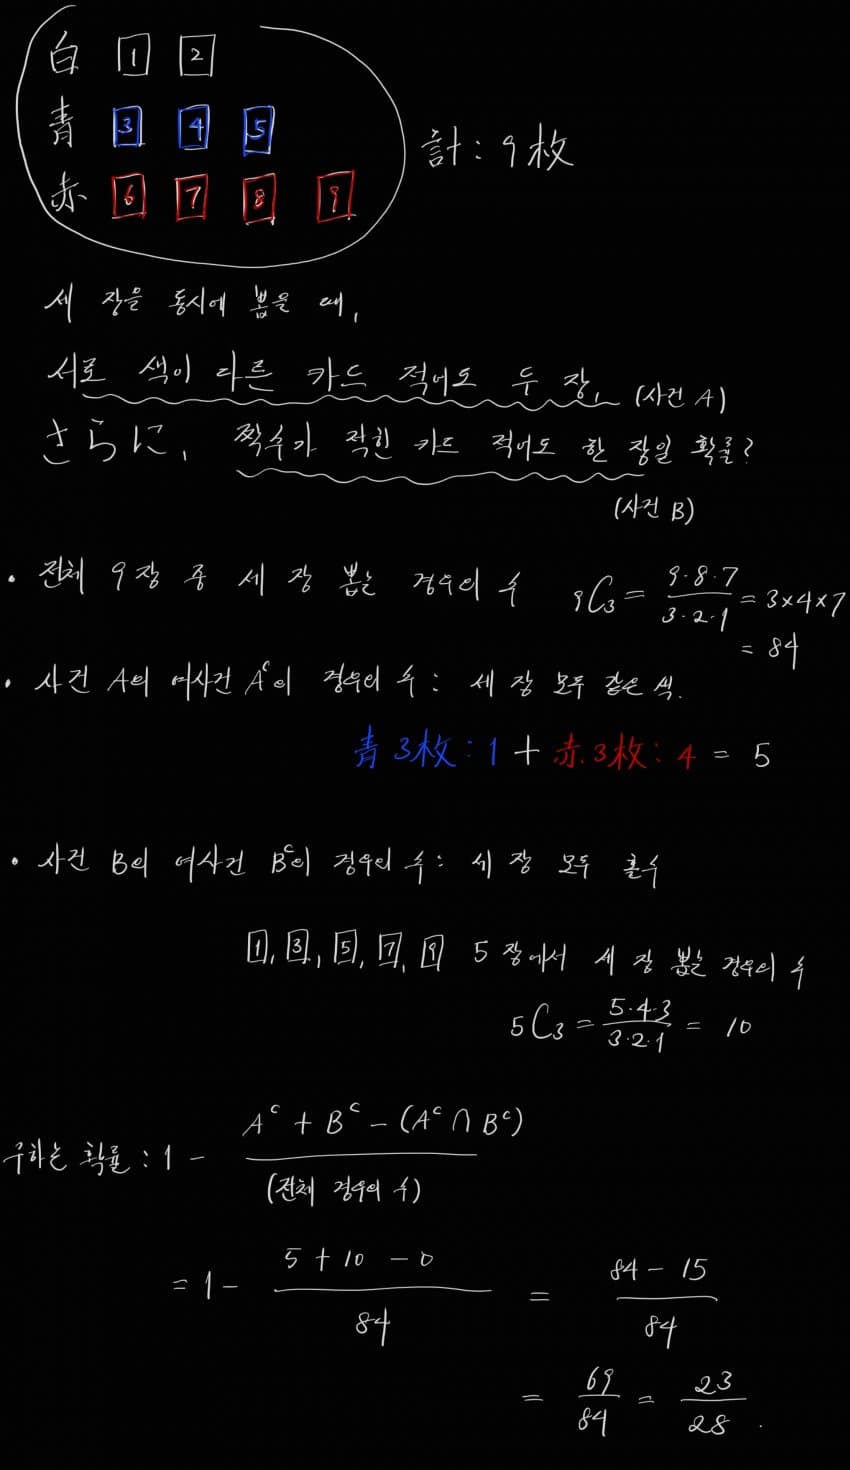 白 1 2
青 3 4 5
赤 6 7 8 9
計: 9枚
세 장을 동시에 뽑을 때,
서로 색이 다른 카드 적어도 두 장, (사건 A)
さらに, 짝수가 적힌 카드 적어도 한 장일 확률?
(사건 B)
• 전체 9장 중 세 장 뽑는 경우의 수 ₉C₃ = 9·8·7/3·2·1 = 3×4×7
= 84
• 사건 A의 여사건 Aᶜ의 경우의 수: 세 장 모두 같은 색.
青 3枚: 1 + 赤 3枚: 4 = 5
• 사건 B의 여사건 Bᶜ의 경우의 수: 세 장 모두 홀수
1, 3, 5, 7, 9 5장에서 세 장 뽑는 경우의 수
5C₃ = 5·4·3/3·2·1 = 10
구하는 확률: 1 - Aᶜ + Bᶜ - (Aᶜ ∩ Bᶜ)/(전체 경우의 수)
= 1 - 5 + 10 - 0/84 = 84 - 15/84
= 69/84 = 23/28.